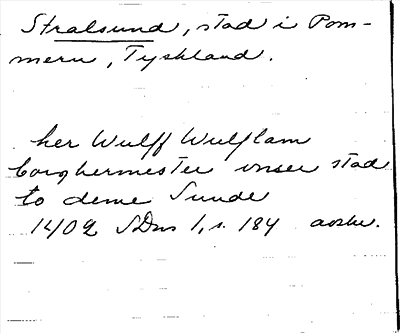 Stralsund, stad i Pom-
mern, Tyskland.
her Wulff Wulflam
borghermester unser stad
to deme Sunde
1409 SDns 1, s. 184